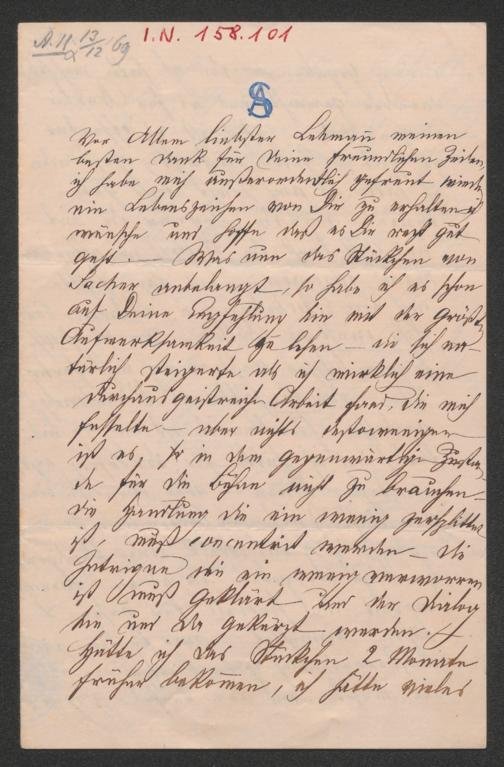 A. 11 13/12 69
I.N. 158.101
AS
Vor Allem liebster Lehmann meinen
besten Dank für Deine freundlichen Zeilen,
ich habe mich außerordentlich gefreut wieder
ein Lebenszeichen von Dir zu erhalten ich
wünsche und hoffe daß es Dir recht gut
geht. — Was nun das Stückchen von
Sacher anbelangt, so habe ich es schon
auf Deine Empfehlung hin mit der größten
Aufmerksamkeit gelesen — die sich na-
türlich steigerte als ich wirklich eine
durchaus geistreiche Arbeit fand, die mich
fesselte — aber nichts destoweniger
ist es, so in dem gegenwärtigen Zustan-
de für die Bühne nicht zu brauchen —
die Handlung die ein wenig zersplittert
ist, muß concentrirt werden — die
Intrigue die ein wenig verworren
ist muß geklärt und der Dialog
hie und da gekürzt werden. —
Hätte ich das Stückchen 2 Monate
früher bekommen, ich hätte vieles